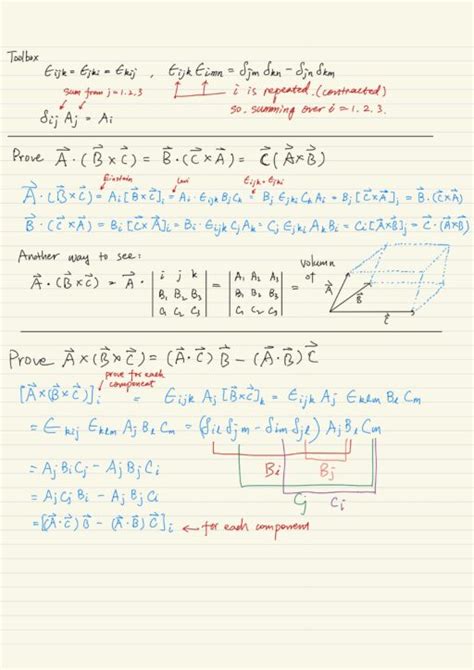 Toolbox
ϵijk = ϵjki = ϵkij , ϵijk ϵimn = δjm δkn − δjn δkm
sum from j=1.2.3
i is repeated. (contracted)
so. summing over i = 1.2.3.
δij Aj = Ai
Prove A⃗·(B⃗×C⃗) = B⃗·(C⃗×A⃗) = C⃗(A⃗×B⃗)
Einstein Levi ϵijk=ϵjki
A⃗·(B⃗×C⃗) = Ai[B⃗×C⃗]i = Ai·ϵijk BjCk = Bj ϵjki CkAi = Bj[C⃗×A⃗]j = B⃗·(C⃗×A⃗)
B⃗·(C⃗×A⃗) = Bi[C⃗×A⃗]i = Bi·ϵijk CjAk = Cj ϵjki AkBi = Ci[A⃗×B⃗]j = C⃗·(A⃗×B⃗)
Another way to see:
A⃗·(B⃗×C⃗) = A⃗· | i j k | = | A1 A2 A3 | = volume of
| B1 B2 B3 | | B1 B2 B3 |
| C1 C2 C3 | | C1 C2 C3 |
A⃗ B⃗ C⃗
Prove A⃗×(B⃗×C⃗) = (A⃗·C⃗)B⃗ − (A⃗·B⃗)C⃗
prove for each component
[A⃗×(B⃗×C⃗)]i = ϵijk Aj[B⃗×C⃗]k = ϵijk Aj ϵklm Bl Cm
= ϵkij ϵklm AjBlCm = (δil δjm − δim δjl) AjBlCm
Bi Bj
= AjBiCj − AjBjCi
Cj Ci
= AjCjBi − AjBjCi
= [(A⃗·C⃗)B⃗ − (A⃗·B⃗)C⃗]i ← for each component